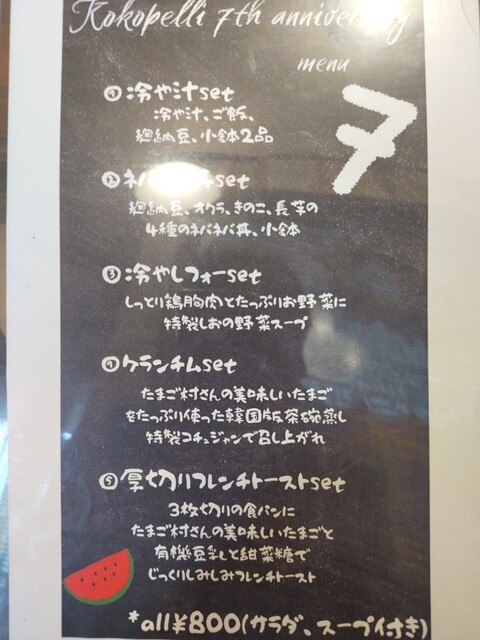 Kokopelli 7th anniversary
menu
7
① 冷や汁set
冷や汁、ご飯、
廻納豆、小鉢2品
② ネバ set
廻納豆、オクラ、きのこ、長芋の
4種のネバネバ丼、小鉢
③ 冷やしフォーset
しっとり鶏胸肉とたっぷりお野菜に
特製しおの野菜スープ
④ ケランチムset
たまご村さんの美味しいたまご
をたっぷり使った韓国版茶碗蒸し
特製コチュジャンで召し上がれ
⑤ 厚切りフレンチトーストset
3枚切りの食パンに
たまご村さんの美味しいたまごと
有機豆乳と甜菜糖で
じっくりしみしみフレンチトースト
*all¥800(サラダ、スープ付き)